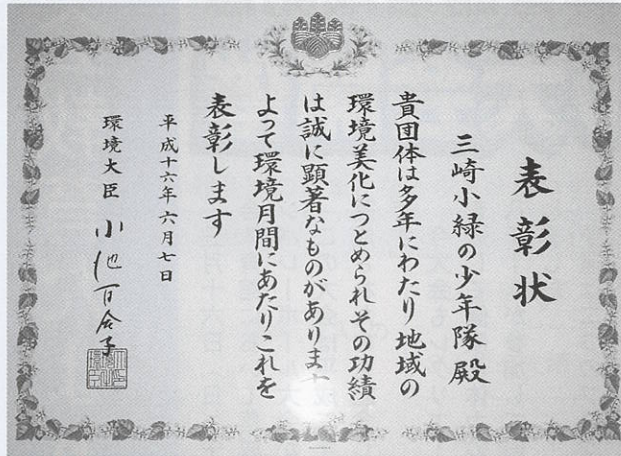 表彰状
三崎小緑の少年隊殿
貴団体は多年にわたり地域の
環境美化につとめられその功績
は誠に顕著なものがあります
よって環境月間にあたりこれを
表彰します
平成十六年六月七日
環境大臣 小池百合子